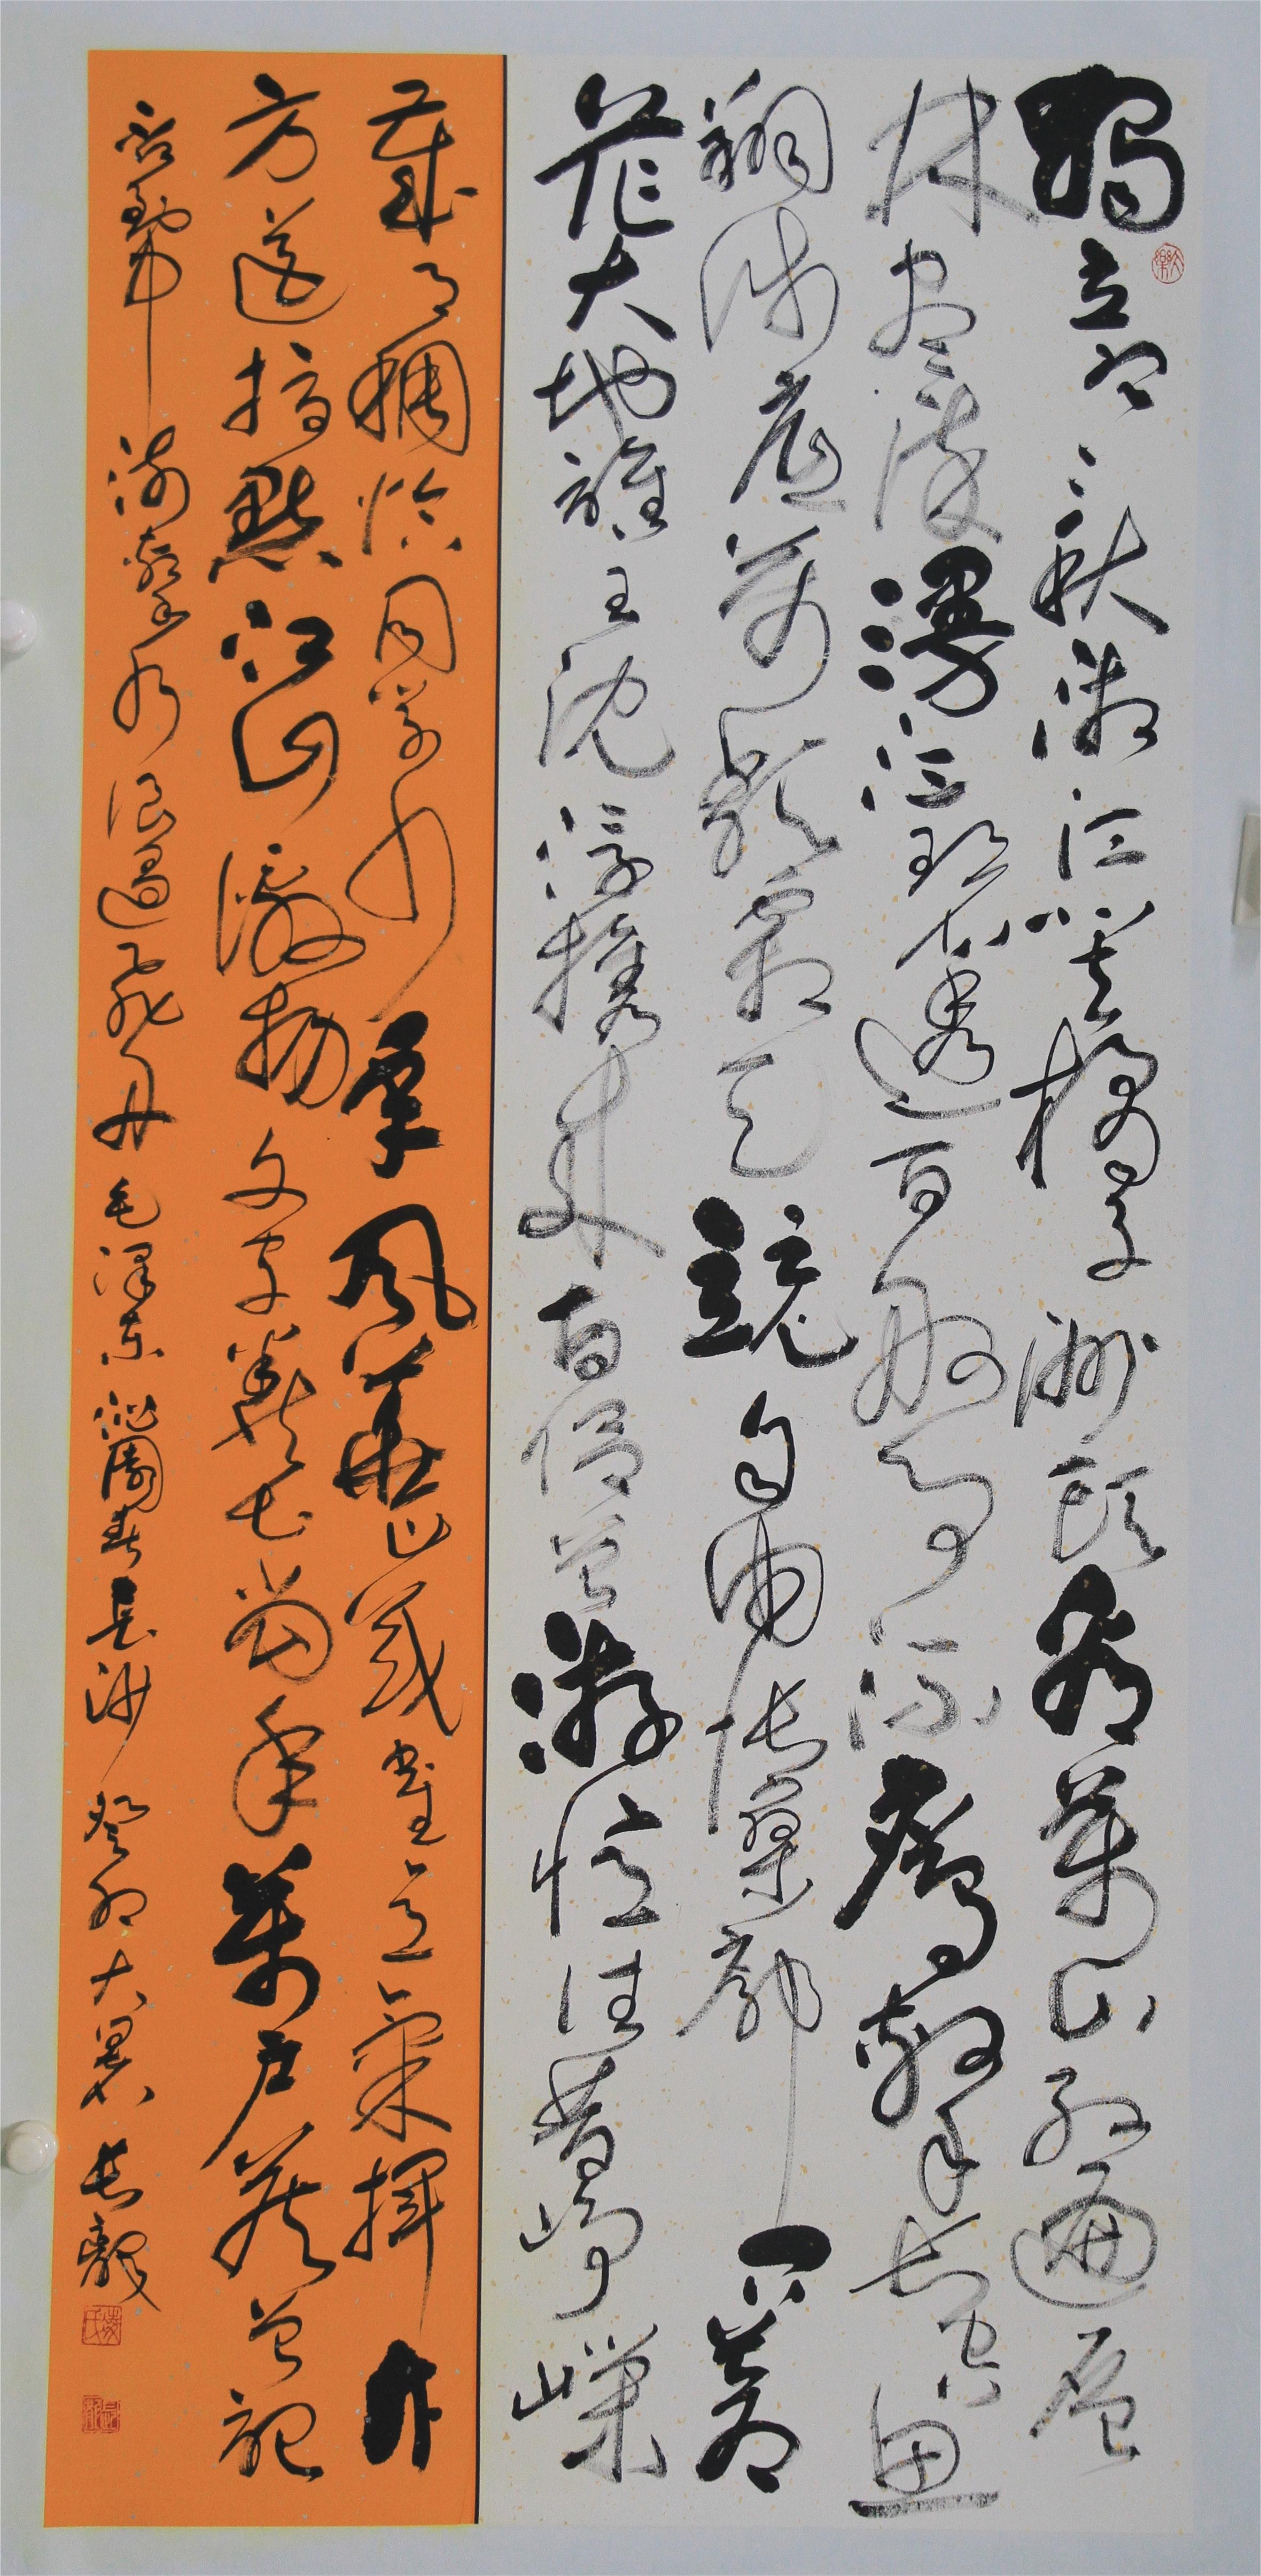 獨立寒秋湘江北去橘子洲頭看萬山紅遍層
林盡染漫江碧透百舸爭流鷹擊長空魚
翔淺底萬類霜天競自由悵寥廓問蒼
茫大地誰主沈浮攜來百侶曾游憶往昔崢嶸
歲月稠恰同學少年風華正茂書生意氣揮斥
方遒指點江山激揚文字糞土當年萬戶侯曾記
否到中流擊水浪遏飛舟毛澤東沁園春長沙癸卯大暑長